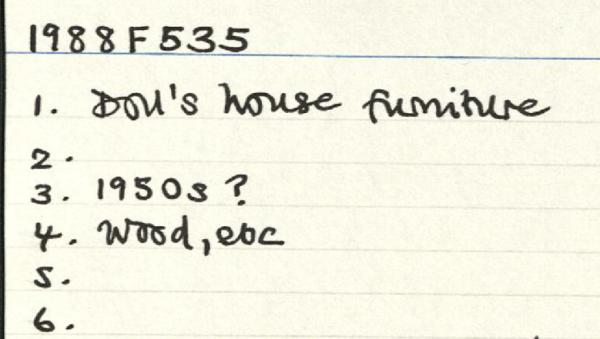 1988F535
1. Doll's house furniture
2.
3. 1950s?
4. Wood, etc
5.
6.